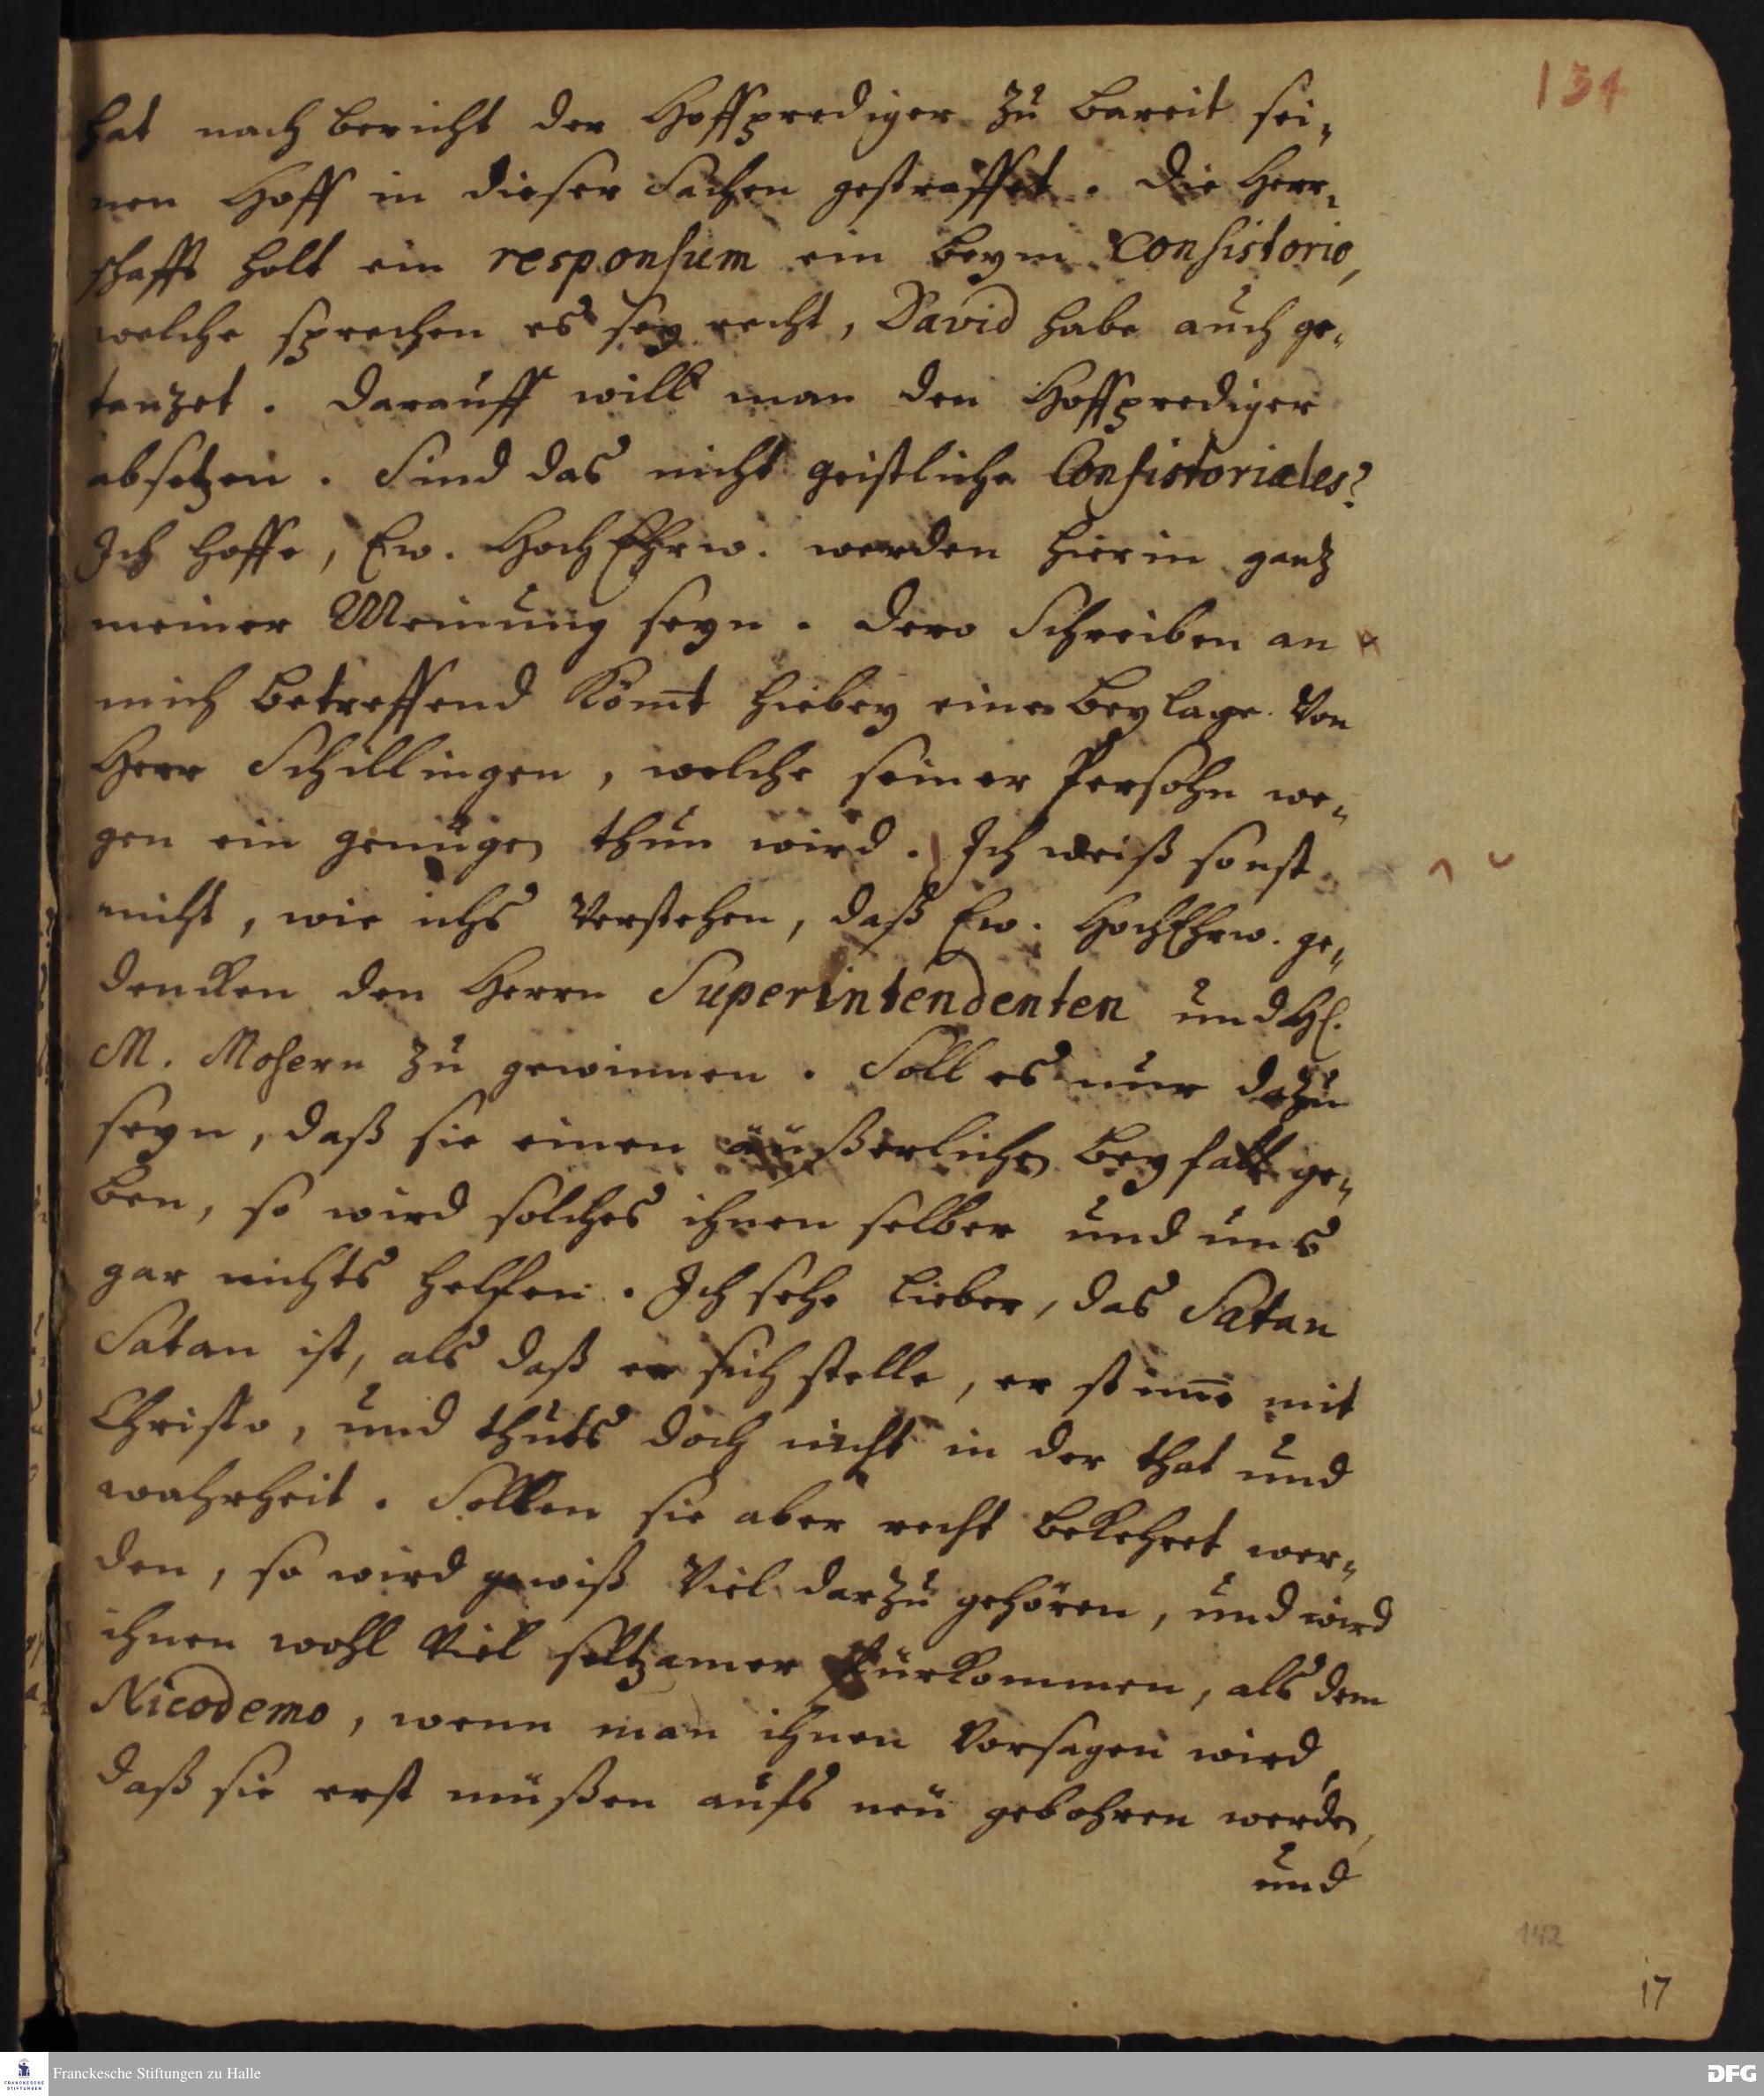 134
hat nach bericht der Hoffprediger zu bareit sei„
nen Hoff in dieser Sachen gestraffet. Die Herr„
schafft holt ein responsum ein beym Consistorio,
welche sprechen es sey recht, David habe auch ge„
tanzet. Darauff will man den Hoffprediger
absetzen. Sind das nicht geistliche Consistoriales?
Ich hoffe, Ew. HochEhrw. werden hierin gantz
meiner Meinung seyn. Dero Schreiben an
mich betreffend kom̄t hiebey eine beylage von
Herr Schillingen, welche seiner Persohn we„
gen ein genügen thun wird. Ich weiß sonst
nicht, wie ichs verstehen, daß Ew. HochEhrw. ge„
dencken den Herrn Superintendenten und H.
M. Mosern zu gewinnen. Soll es nur dazu
seyn, daß sie einen äußerlichen beyfall ge„
ben, so wird solches ihnen selber und uns
gar nichts helffen. Ich sehe lieber, das Satan
Satan ist, als daß er sich stelle, er stim̄e mit
Christo, und thuts doch nicht in der that und
wahrheit. Sollen sie aber recht bekehret wer„
den, so wird gewiß viel darzu gehören, und wird
ihnen wohl viel seltzamer fürkommen, als dem
Nicodemo, wenn man ihnen vorsagen wird,
daß sie erst müßen aufs neü gebohren werden,
und
142
17
Franckesche Stiftungen zu Halle
DFG